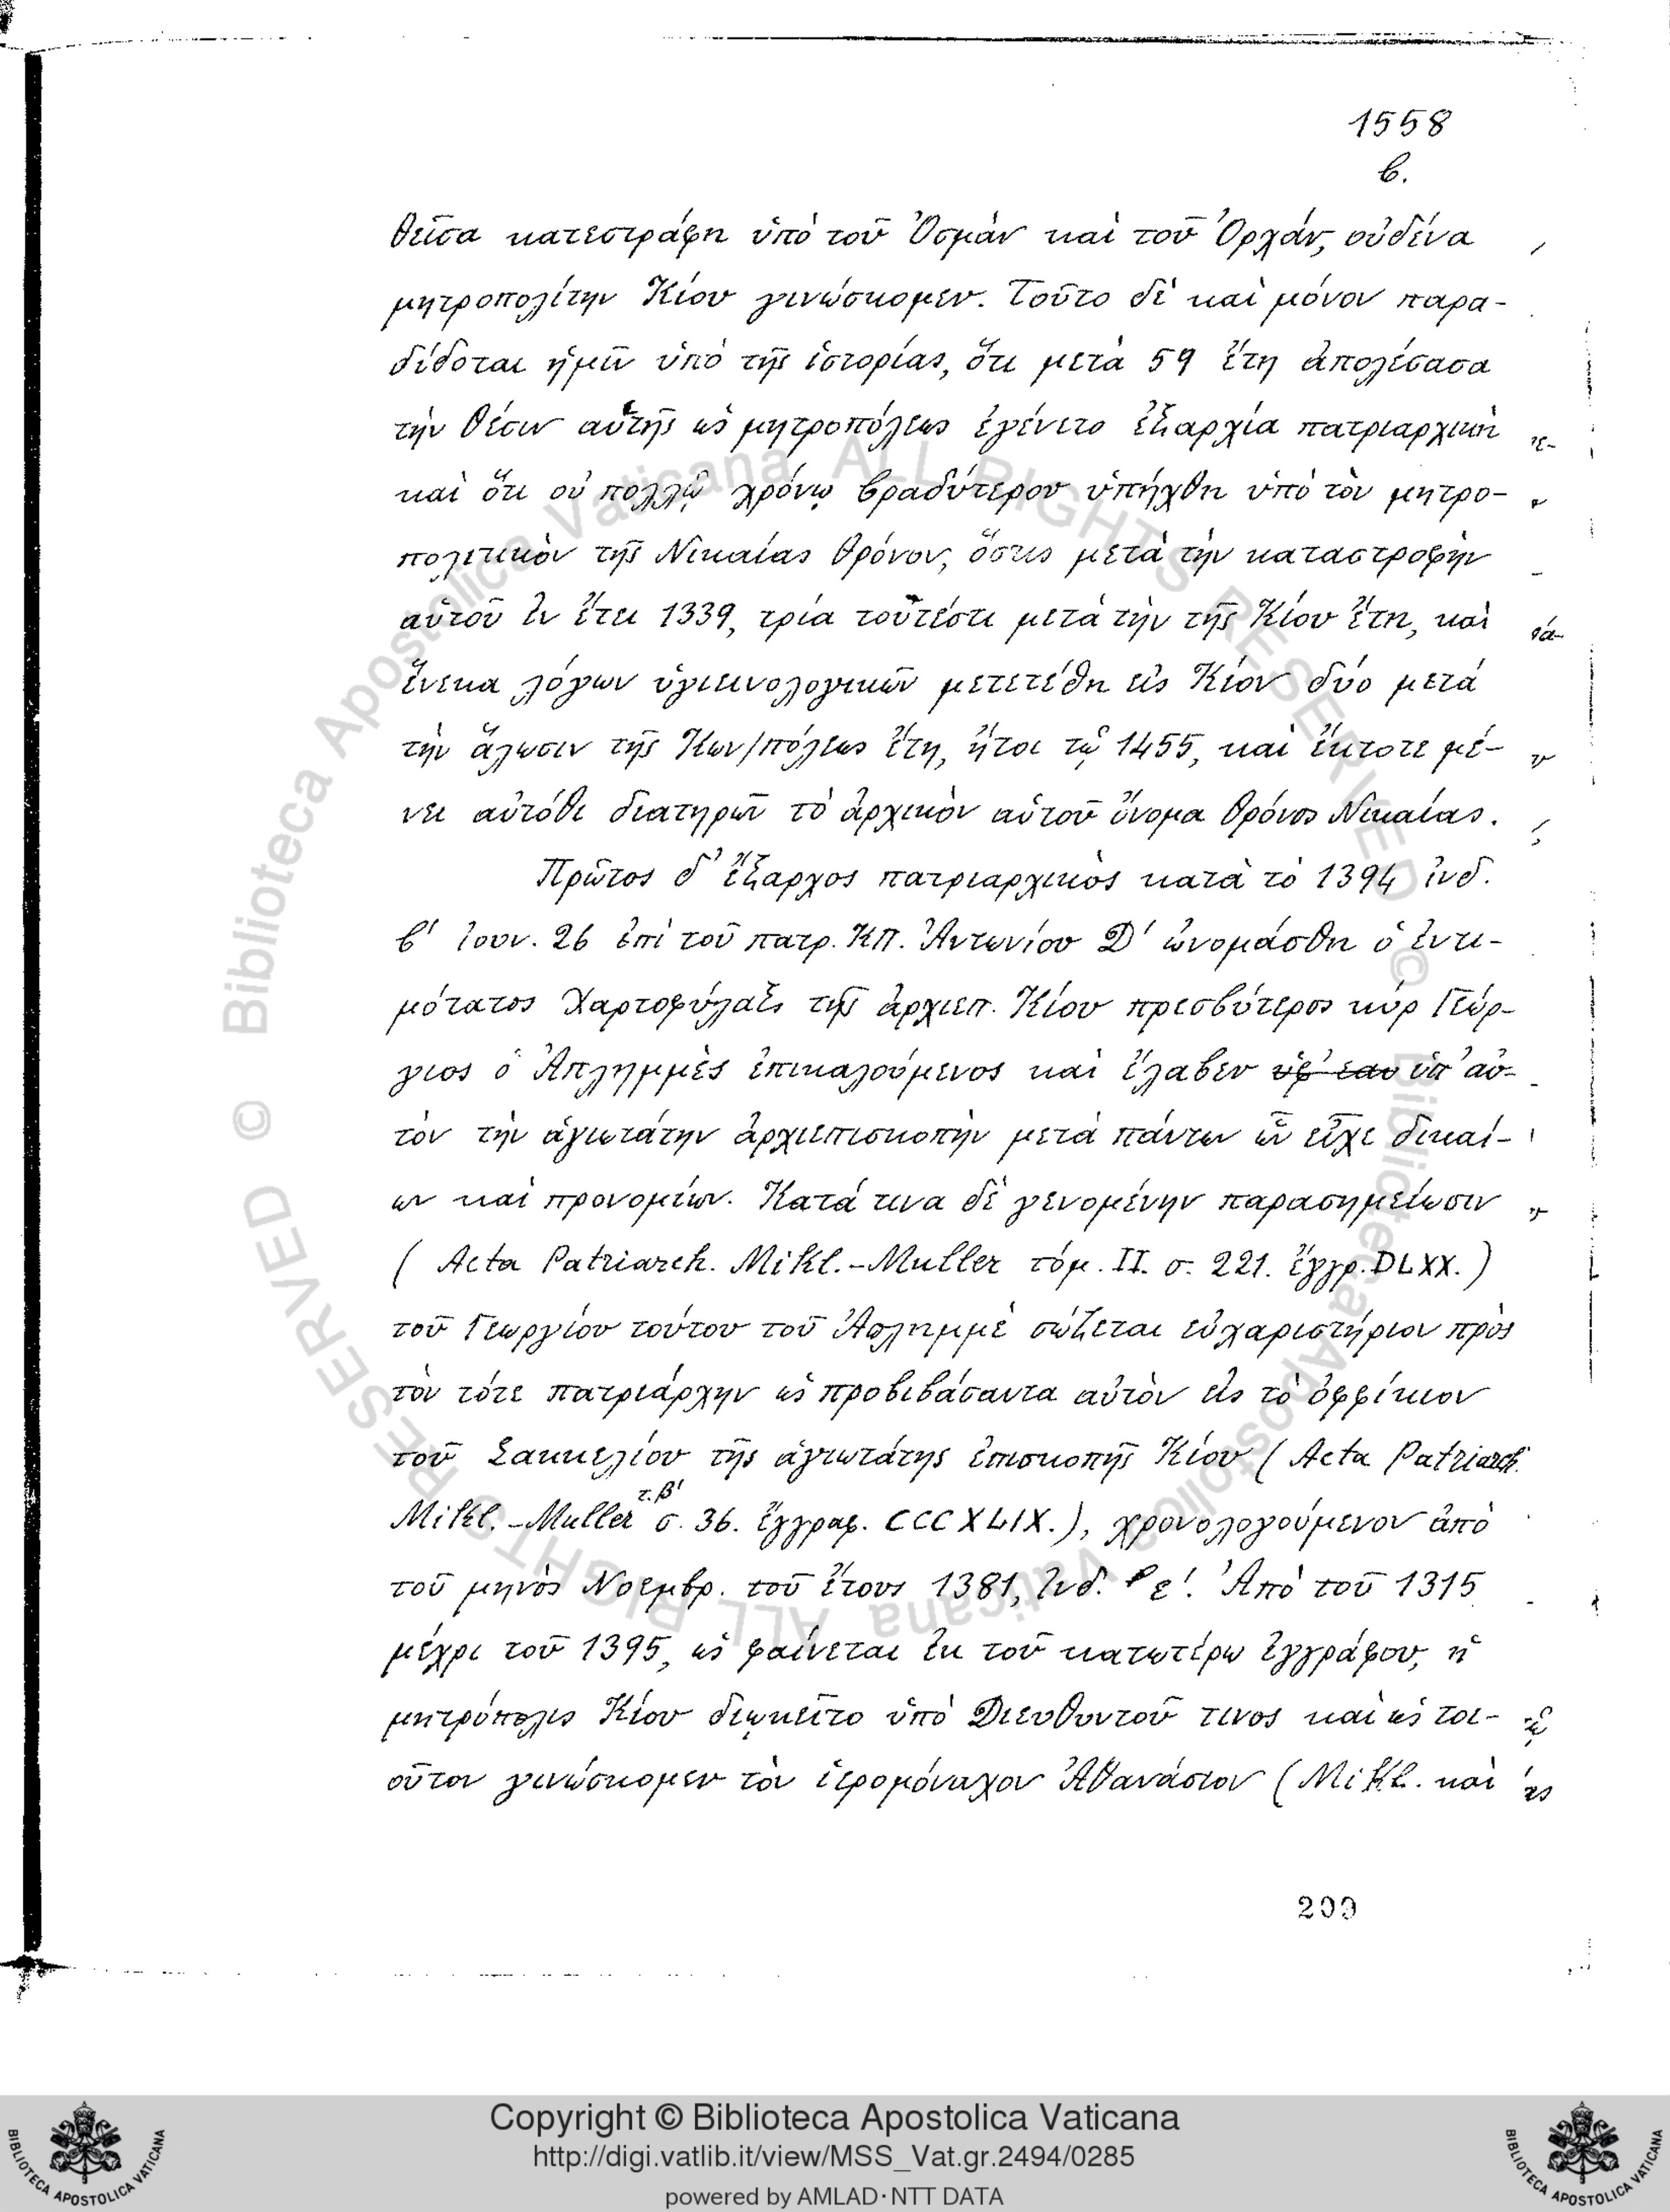 1558
β.
θεῖσα κατεστράφη ὑπὸ τοῦ Ὀσμὰν καὶ τοῦ Ὀρχάν, οὐδένα
μητροπολίτην Κίου γινώσκομεν. Τοῦτο δὲ καὶ μόνον παρα-
δίδοται ἡμῖν ὑπὸ τῆς ἱστορίας, ὅτι μετὰ 59 ἔτη ἀπολέσασα
τὴν θέσιν αὐτῆς ὡς μητροπόλεως ἐγένετο ἐξαρχία πατριαρχικὴ
καὶ ὅτι οὐ πολλῷ χρόνῳ βραδύτερον ὑπήχθη ὑπὸ τὸν μητρο-
πολιτικὸν τῆς Νικαίας θρόνον, ὅστις μετὰ τὴν καταστροφὴν
αὐτοῦ ἐν ἔτει 1339, τρία τοὐτέστι μετὰ τὴν τῆς Κίου ἔτη, καὶ
ἕνεκα λόγων ὑγιεινολογικῶν μετετέθη εἰς Κίον δύο μετὰ
τὴν ἅλωσιν τῆς Κων/πόλεως ἔτη, ἤτοι τῷ 1455, καὶ ἔκτοτε μέ-
νει αὐτόθι διατηρῶν τὸ ἀρχικὸν αὐτοῦ ὄνομα θρόνος Νικαίας.
Πρῶτος δ' ἔξαρχος πατριαρχικὸς κατὰ τὸ 1394 ἰνδ.
β' Ἰουν. 26 ἐπὶ τοῦ πατρ. ΚΠ. Ἀντωνίου Δ' ὠνομάσθη ὁ ἐντι-
μότατος Χαρτοφύλαξ τῆς ἀρχιεπ. Κίου πρεσβύτερος κὺρ Γεώρ-
γιος ὁ Ἀπλημμὲς ἐπικαλούμενος καὶ ἔλαβεν ὑφ' εαυ ὑπ' αὐ-
τὸν τὴν ἁγιωτάτην ἀρχιεπισκοπὴν μετὰ πάντων ὧν εἶχε δικαί-
ων καὶ προνομίων. Κατά τινα δὲ γενομένην παρασημείωσιν
( Acta Patriarch. Mikl.-Muller τόμ. II. σ. 221. ἔγγρ. DLXX.)
τοῦ Γεωργίου τούτου τοῦ Ἀπλημμὲ σώζεται εὐχαριστήριον πρὸς
τὸν τότε πατριάρχην ὡς προβιβάσαντα αὐτὸν εἰς τὸ ὀφφίκιον
τοῦ Σακκελίου τῆς ἁγιωτάτης ἐπισκοπῆς Κίου ( Acta Patriarch.
Mikl.-Muller τ. β' σ. 36. ἔγγραφ. CCCXLIX.), χρονολογούμενον ἀπὸ
τοῦ μηνὸς Νοεμβρ. τοῦ ἔτους 1381, ἰνδ. ε'. Ἀπὸ τοῦ 1315
μέχρι τοῦ 1395, ὡς φαίνεται ἐκ τοῦ κατωτέρω ἐγγράφου, ἡ
μητρόπολις Κίου διῳκεῖτο ὑπὸ Διευθυντοῦ τινος καὶ ὡς τοι-
οῦτον γινώσκομεν τὸν ἱερομόναχον Ἀθανάσιον (Mikl. καὶ
209
© Biblioteca Apostolica Vaticana ALL RIGHTS RESERVED
© Biblioteca Apostolica Vaticana ALL RIGHTS RESERVED
Copyright © Biblioteca Apostolica Vaticana
http://digi.vatlib.it/view/MSS_Vat.gr.2494/0285
powered by AMLAD·NTT DATA
BIBLIOTECA APOSTOLICA VATICANA
BIBLIOTECA APOSTOLICA VATICANA